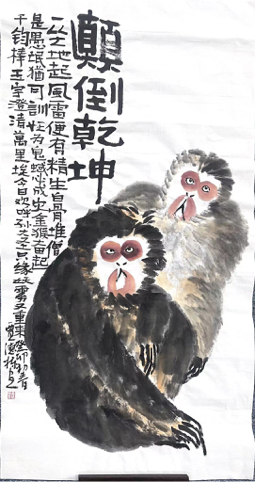 顛倒乾坤
一从大地起風雷便有精生白骨堆僧
是愚氓猶可訓妖为鬼蜮必成灾金猴奋起
千鈞棒玉宇澄清萬里埃今日欢呼孙大圣只缘妖雾又重來癸卯初春